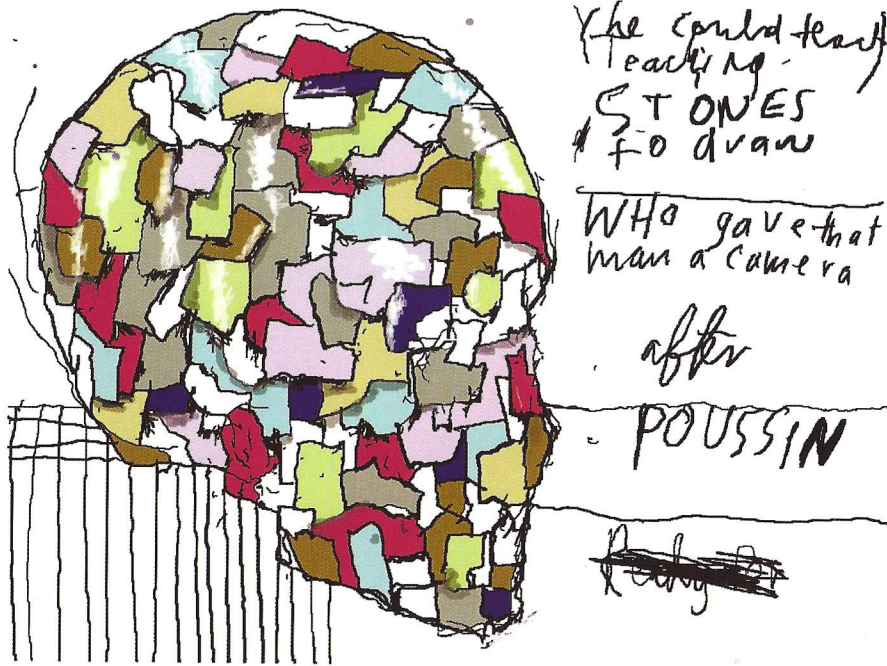 he could teach
Teaching
STONES
to draw
WHO gave that
man a camera
after
POUSSIN